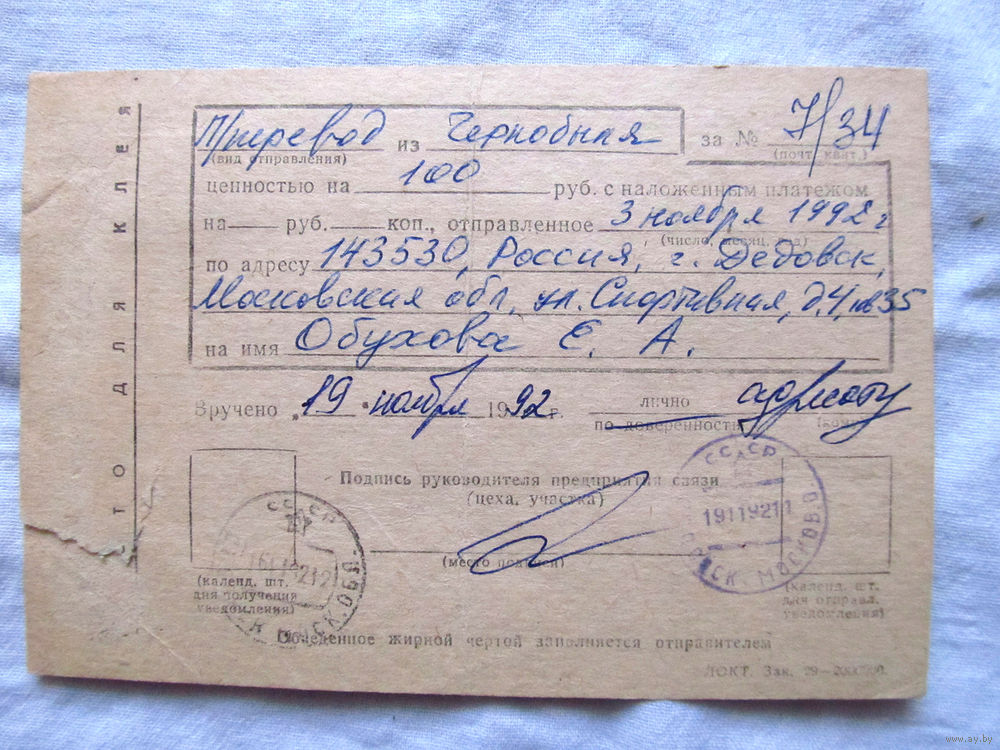 П/перевод из Чернобыля за № 7/34
(вид отправления) (почт. квит.)
ценностью на 100 руб. с наложенным платежом
на руб. коп., отправленное 3 ноября 1992 г
(число, месяц, год)
по адресу 143530, Россия, г. Дедовск,
Московская обл, ул. Спортивная, д.4, кв 35
на имя Обухова Е. А.
Вручено „19" ноября 1992 г. лично адресату
по доверенности
Подпись руководителя предприятия связи
(цеха, участка)
(место подписи)
СССР
19119211
МОСКОВ. О
СССР
СК. ОБЛ.
(календ. шт.
дня получения
уведомления)
(календ. шт.
дня отправл.
уведомления)
Обведенное жирной чертой заполняется отправителем
ЛОКТ. Зак. 29—
ТО ДЛЯ КЛЕЯ
www.ay.by